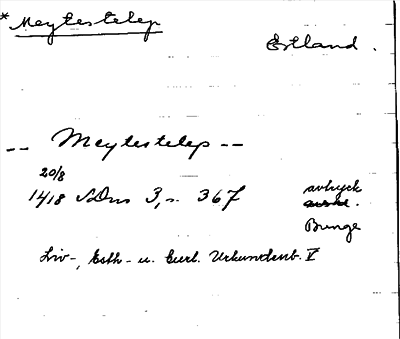 *Meytestelep
Estland.
-- Meytestelep --
20/8
1418 SDns 3, s. 367 avtryck
Bunge
Liv-, Esth- u. Curl. Urkundenb. V